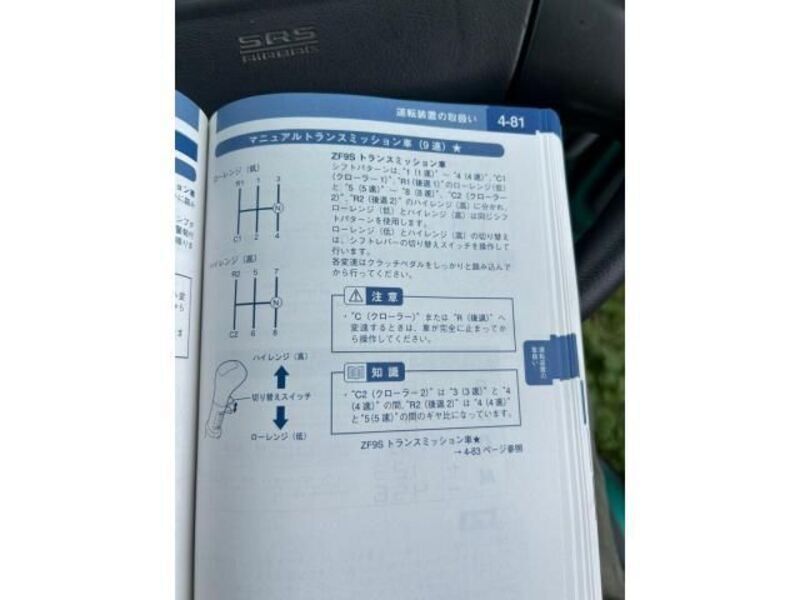 SRS
AIRBAG
運転装置の取扱い 4-81
マニュアルトランスミッション車（9速）★
ローレンジ（低）
R1 1 3
N
C1 2 4
ハイレンジ（高）
R2 5 7
N
C2 6 8
ハイレンジ（高）
切り替えスイッチ
ローレンジ（低）
ZF9S トランスミッション車
シフトパターンは、"1（1速）" ～ "4（4速）"、"C1
（クローラー1）"、"R1（後退1）"のローレンジ（低）
と "5（5速）" ～ "8（8速）"、"C2（クローラー
2）"、"R2（後退2）" のハイレンジ（高）に分かれ、
ローレンジ（低）とハイレンジ（高）は同じシフ
トパターンを使用します。
ローレンジ（低）とハイレンジ（高）の切り替え
は、シフトレバーの切り替えスイッチを操作して
行います。
各変速はクラッチペダルをしっかりと踏み込んで
から行ってください。
注 意
・"C（クローラー）" または "R（後退）" へ
変速するときは、車が完全に止まってか
ら操作してください。
知 識
・"C2（クローラー2）" は "3（3速）" と "4
（4速）" の間、"R2（後退2）" は "4（4速）"
と "5（5速）" の間のギヤ比になっています。
ZF9S トランスミッション車★
→ 4-83 ページ参照
運転装置の
取扱い